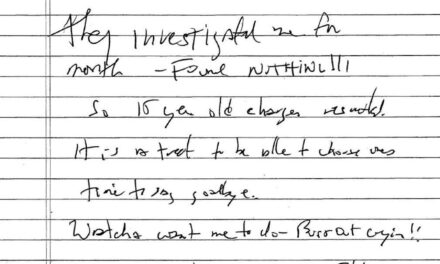 they investigated me for
month – Found NOTHING!!!
So year old charges resulted.
It is a treat to be able to choose ones
time to say goodbye.
Watcha want me to do – Burst out cryin!!